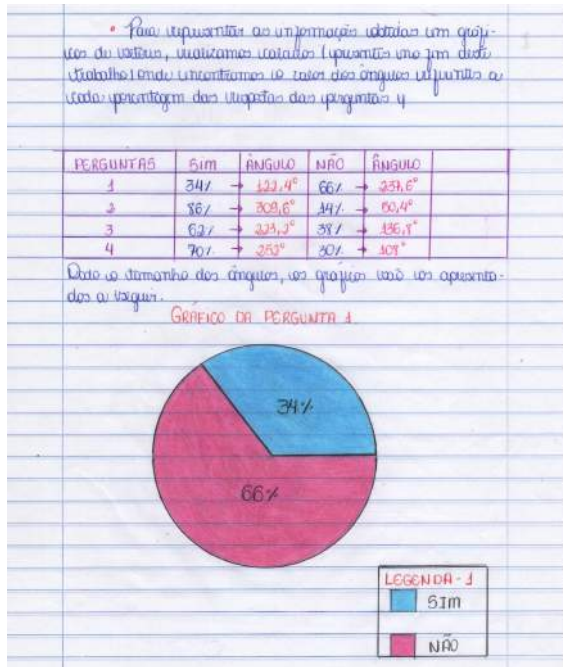 • Para representar as informações obtidas em gráfi-
cos de setores, realizamos calculos (presentes no fim deste
trabalho) onde encontramos o valor dos ângulos referentes a
cada porcentagem das respostas das perguntas
PERGUNTAS Sim ÂNGULO NÃO ÂNGULO
1 34% → 122,4° 66% → 237,6°
2 86% → 309,6° 14% → 50,4°
3 62% → 223,2° 38% → 136,8°
4 70% → 252° 30% → 108°
Dado o tamanho dos ângulos, os gráficos são os apresenta-
dos a seguir.
GRÁFICO DA PERGUNTA 1.
34%
66%
LEGENDA - 1
SIM
NÃO